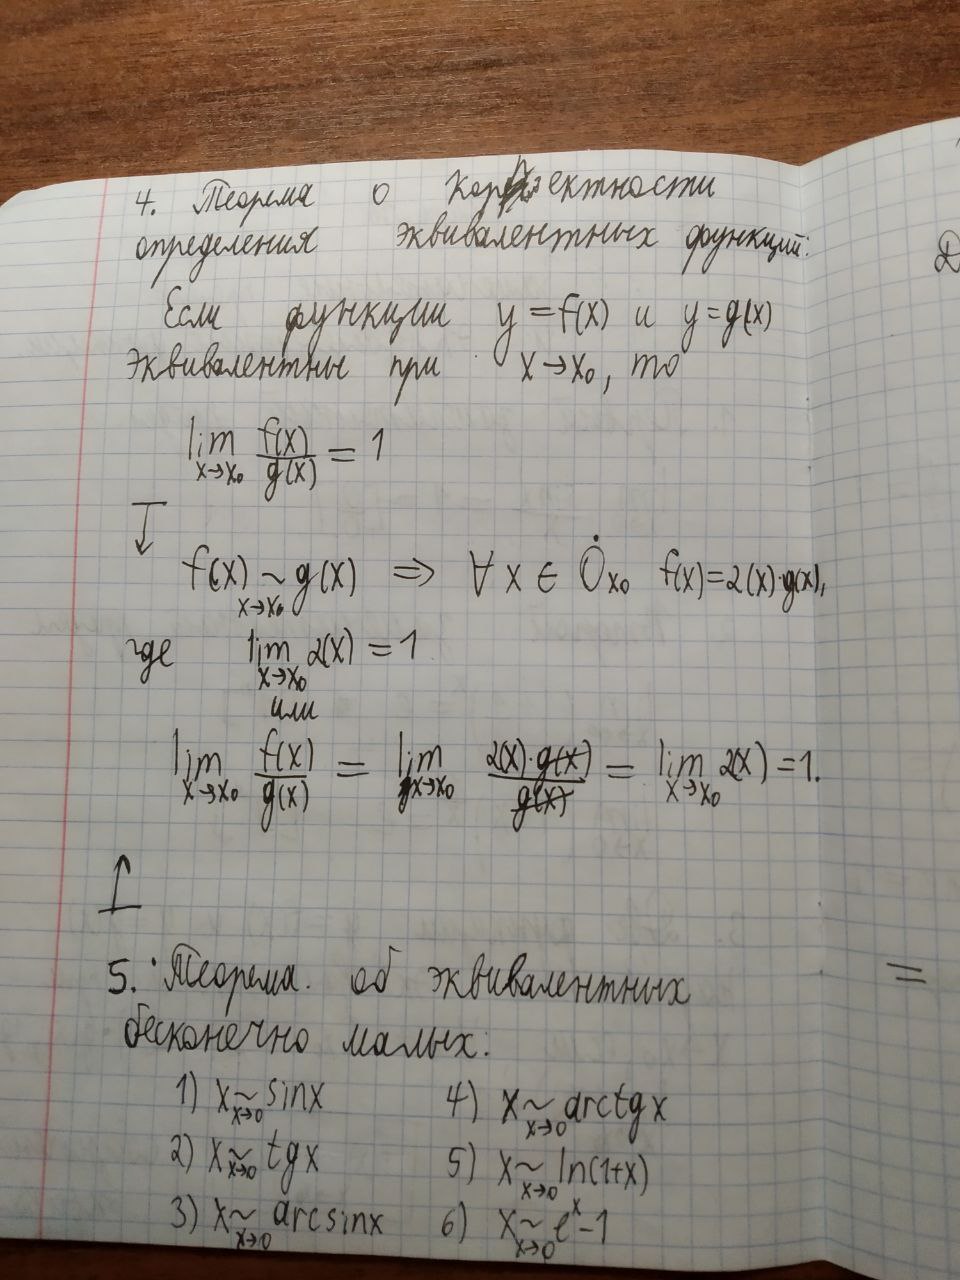 4. Теорема о корректности
определения эквивалентных функций:
Если функции y = f(x) и y = g(x)
эквивалентны при x → x₀, то
lim x→x₀ f(x)/g(x) = 1
↧
f(x) ~ x→x₀ g(x) ⇒ ∀ x ∈ Ȯx₀ f(x) = 2(x)·g(x),
где lim x→x₀ 2(x) = 1
или
lim x→x₀ f(x)/g(x) = lim x→x₀ 2(x)·g(x)/g(x) = lim x→x₀ 2(x) = 1.
↥
5. Теорема. об эквивалентных
бесконечно малых:
1) x ~ x→0 sinx
2) x ~ x→0 tgx
3) x ~ x→0 arcsinx
4) x ~ x→0 arctgx
5) x ~ x→0 ln(1+x)
6) x ~ x→0 eˣ-1
Д
=